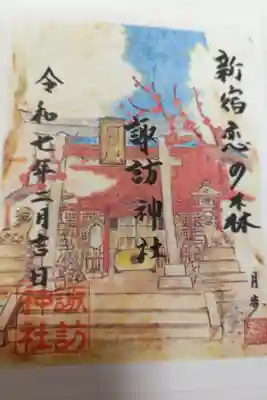 新宿恋の森
諏訪神社
令和七年二月吉日
諏訪
神社